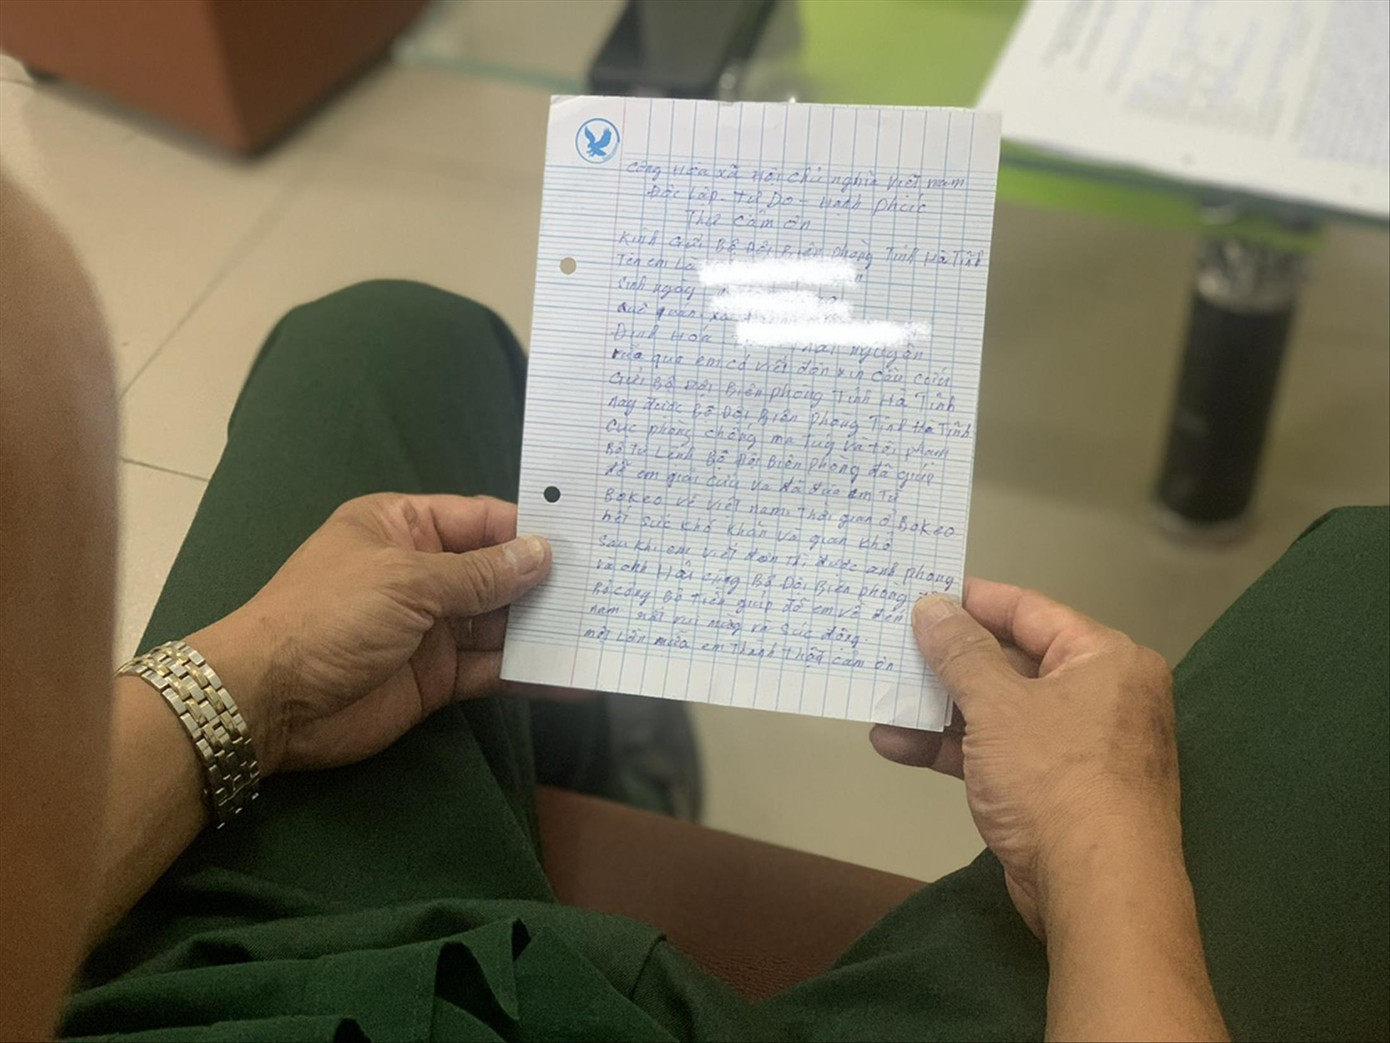 Cộng Hòa xã Hội chủ nghĩa việt nam
Độc Lập - Tự Do - Hạnh phúc
Thư cảm ơn
Kính Gửi Bộ Đội Biên phòng Tỉnh Hà Tĩnh
Tên em Là
Sinh ngày
Quê quán xã
Định Hoá Thái nguyên
vừa qua em có viết đơn xin cầu cứu
Gửi Bộ Đội Biên phòng Tỉnh Hà Tĩnh
nay được Bộ Đội Biên Phòng Tỉnh Hà Tĩnh
Cục phòng chống ma tuý và tội phạm
Bộ Tư Lệnh Bộ Đội Biên phòng đã giúp
đỡ em giải cứu và đã đưa em Từ
BoKeo về việt nam. Thời gian ở BoKeo
hết sức khó khăn và gian khổ
Sau khi em viết đơn thì được anh phong
và anh Hải cùng Bộ Đội Biên phòng
bỏ công Bỏ tiền giúp đỡ em về đến
nam rất vui mừng và Súc động.
một Lần nữa em Thành Thật cảm ơn